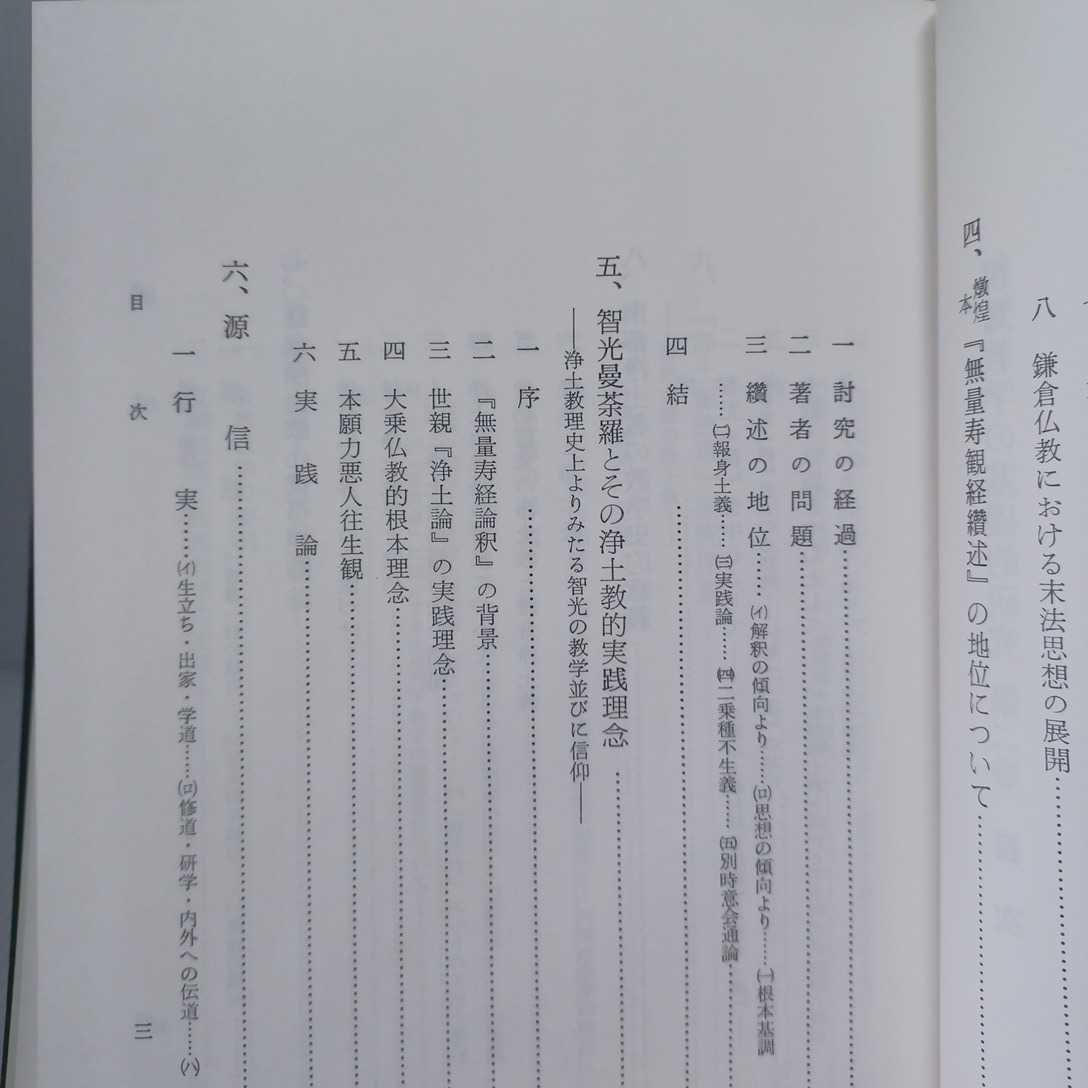 八 鎌倉仏教における末法思想の展開……
四、燉煌本『無量寿観経纉述』の地位について……
一 討究の経過……
二 著者の問題……
三 纉述の地位……(イ)解釈の傾向より……(ロ)思想の傾向より……(一)根本基調
……(二)報身土義……(三)実践論……(四)二乗種不生義……(五)別時意会通論……
四 結……
五、智光曼荼羅とその浄土教的実践理念……
――浄土教理史上よりみたる智光の教学並びに信仰――
一 序……
二 『無量寿経論釈』の背景……
三 世親『浄土論』の実践理念……
四 大乗仏教的根本理念……
五 本願力悪人往生観……
六 実践論……
六、源信……
一 行実……(イ)生立ち・出家・学道……(ロ)修道・研学・内外への伝道……(ハ)
目次
三